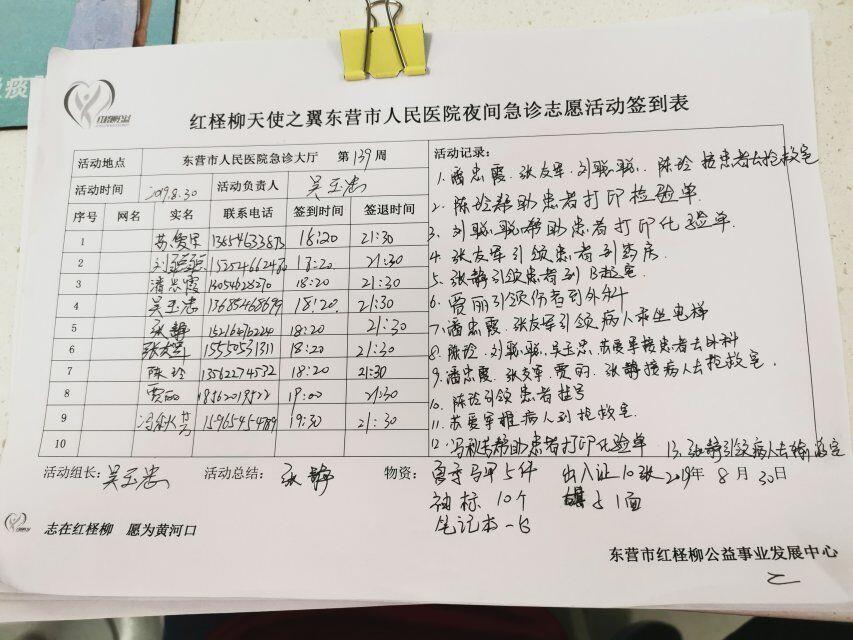 痰
红柽柳天使之翼东营市人民医院夜间急诊志愿活动签到表
活动地点 东营市人民医院急诊大厅 第139周
活动时间 2019.8.30 活动负责人 吴玉忠
序号 网名 实名 联系电话 签到时间 签退时间
1 苏爱军 18:20 21:30
2 刘聪聪 18:20 21:30
3 潘忠霞 18:20 21:30
4 吴玉忠 18:20 21:30
5 张静 18:20 21:30
6 张友军 15550531311 18:20 21:30
7 陈玲 13562274532 18:20 21:30
8 贾丽 19:00 21:30
9 冯秋芳 19:30 21:30
10
活动记录:
1、潘忠霞、张友军、刘聪聪、陈玲接患者去抢救室
2、陈玲帮助患者打印检验单.
3、刘聪聪帮助患者打印化验单.
4、张友军引领患者到药房.
5、张静引领患者到B超室.
6、贾丽引领伤者到外科
7、潘忠霞、张友军引领病人乘坐电梯
8、陈玲、刘聪聪、吴玉忠、苏爱军接患者去外科
9、潘忠霞、张友军、贾丽、张静接病人去抢救室.
10、陈玲引领患者挂号
11、苏爱军推病人到抢救室.
12、冯秋芳帮助患者打印化验单 13、张静引领病人去输液室
活动组长: 吴玉忠 活动总结: 张静 物资: 马甲5件 出入证10张 2019年8月30日
袖标10个 1面
笔记本一
志在红柽柳 愿为黄河口
东营市红柽柳公益事业发展中心